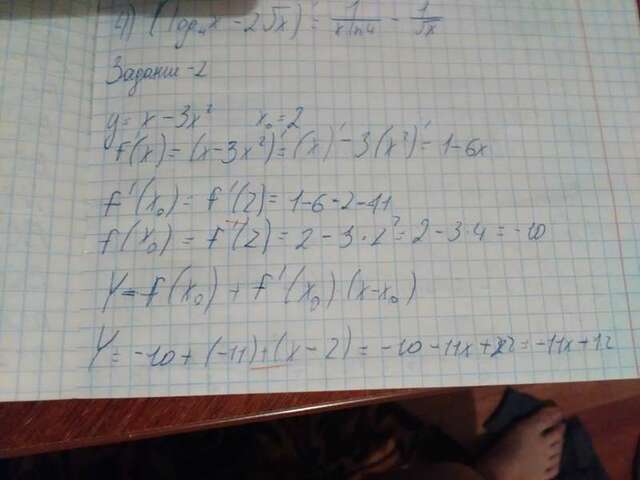 4) (log₄x - 2√x)' = 1/(x ln4) - 1/√x
Задание-2
y = x - 3x² x₀ = 2
f'(x) = (x-3x²)' = (x)' - 3(x²)' = 1-6x
f'(x₀) = f'(2) = 1-6·2=-11
f(x₀) = f(2) = 2 - 3·2² = 2-3·4 = -10
Y = f(x₀) + f'(x₀)(x-x₀)
Y = -10 + (-11)+(x-2) = -10 -11x+22 = -11x+12